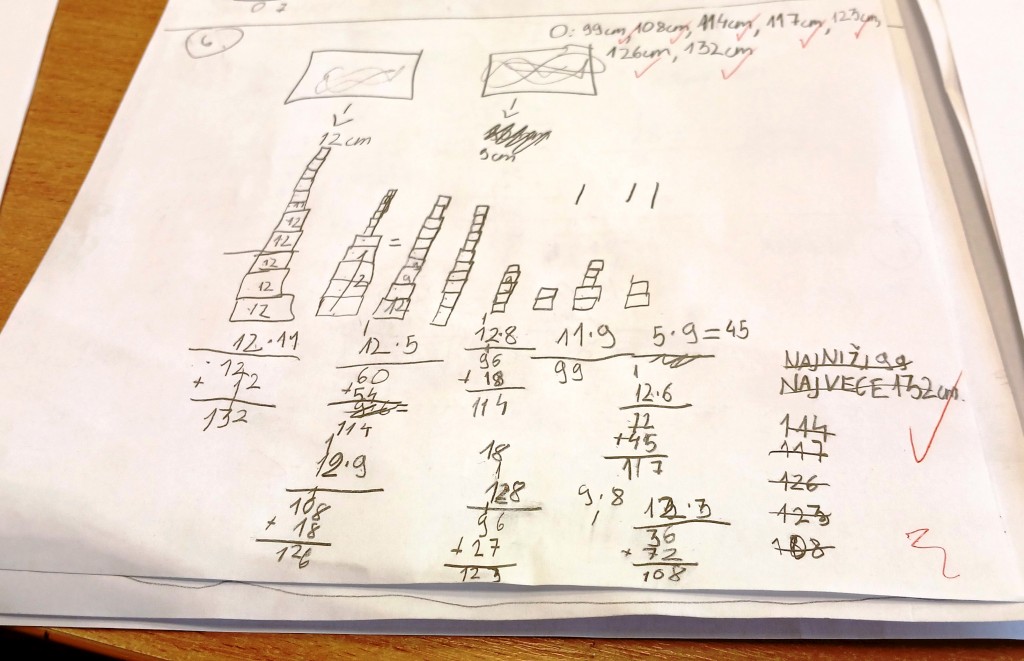 6.
O: 99cm, 108cm, 114cm, 117cm, 123cm,
126cm, 132cm
12cm
9cm
11
12
12
12
12
12
1
2
=
9
12
9
12·11
12
+ 12
132
12·5
60
+54
114
12·8
96
+ 18
114
11·9
99
5·9=45
12·6
72
+45
117
NAJNIŽI 99
NAJVEĆE 132cm.
114
117
126
123
108
12·9
108
+ 18
126
18
128
96
+27
123
9·8
12·3
36
+ 72
108
3